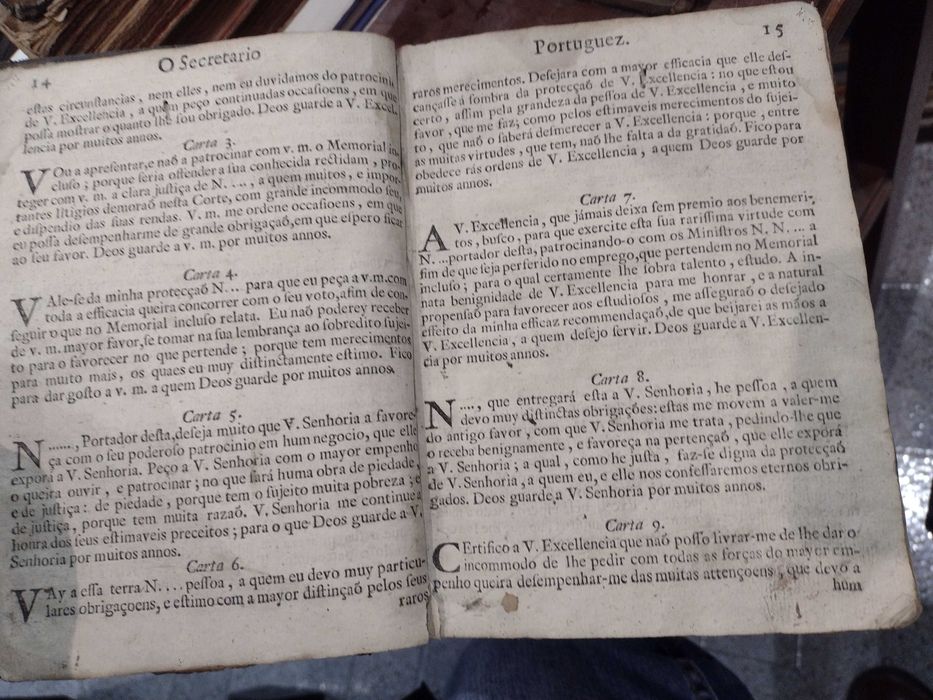 14
O Secretario
estas circunstancias, nem elles, nem eu duvidamos do patrocinio
de V. Excellencia, a quem peço continuadas occasioens, em que
possa mostrar o quanto lhe sou obrigado. Deos guarde a V. Excel-
lencia por muitos annos.
Carta 3.
VOu a apresentar, e naõ a patrocinar com v. m. o Memorial in-
cluso; porque seria offender a sua conhecida rectidam, pro-
teger com v. m. a clara justiça de N...., a quem muitos, e impor-
tantes litigios demoraõ nesta Corte, com grande incommodo seu,
e dispendio das suas rendas. V. m. me ordene occasioens, em que
eu possa desempenharme de grande obrigaçaõ, em que espero ficar
ao seu favor. Deos guarde a v. m. por muitos annos.
Carta 4.
VAle-se da minha protecçaõ N... para que eu peça a v.m. com
toda a efficacia queira concorrer com o seu voto, afim de con-
seguir o que no Memorial incluso relata. Eu naõ poderey receber
de v. m. mayor favor, se tomar na sua lembrança ao sobredito sujei-
to para o favorecer no que pertende; porque tem merecimentos
para muito mais, os quaes eu muy distinctamente estimo. Fico
para dar gosto a v. m. a quem Deos guarde por muitos annos.
Carta 5.
N....., Portador desta, deseja muito que V. Senhoria a favore-
ça com o seu poderoso patrocinio em hum negocio, que elle
exporá a V. Senhoria. Peço a V. Senhoria com o mayor empenho
o queira ouvir, e patrocinar; no que fará huma obra de piedade,
e de justiça: de piedade, porque tem o sujeito muita pobreza; e
de justiça, porque tem muita razaõ. V. Senhoria me continue a
honra dos seus estimaveis preceitos; para o que Deos guarde a V.
Senhoria por muitos annos.
Carta 6.
VAy a essa terra N.... pessoa, a quem eu devo muy particu-
lares obrigaçoens, e estimo com a mayor distinçaõ pelos seus
raros
Portuguez.
15
raros merecimentos. Desejara com a mayor efficacia que elle des-
cançasse á sombra da protecçaõ de V. Excellencia: no que estou
certo, assim pela grandeza da pessoa de V. Excellencia, e muito
favor, que me faz; como pelos estimaveis merecimentos do sujei-
to, que naõ o saberá desmerecer a V. Excellencia: porque, entre
as muitas virtudes, que tem, naõ lhe falta a da gratidaõ. Fico para
obedece rás ordens de V. Excellencia, a quem Deos guarde por
muitos annos.
Carta 7.
A V. Excellencia, que jámais deixa sem premio aos benemeri-
tos, busco, para que exercite esta sua rarissima virtude com
N. ...portador desta, patrocinando-o com os Ministros N. N. ... a
fim de que seja perferido no emprego, que pertende no Memorial
incluso; para o qual certamente lhe sobra talento, estudo. A in-
nata benignidade de V. Excellencia para me honrar, e a natural
propensaõ para favorecer aos estudiosos, me asseguraõ o desejado
effeito da minha efficaz recommendaçaõ, de que beijarei as mãos a
V. Excellencia, a quem desejo servir. Deos guarde a V. Excellen-
cia por muitos annos.
Carta 8.
N...., que entregará esta a V. Senhoria, he pessoa, a quem
devo muy distinctas obrigações: estas me movem a valer-me
do antigo favor, com que V. Senhoria me trata, pedindo-lhe que
o receba benignamente, e favoreça na pertençaõ, que elle exporá
a V. Senhoria; a qual, como he justa, faz-se digna da protecçaõ
de V. Senhoria, a quem eu, e elle nos confessaremos eternos obri-
gados. Deos guarde a V. Senhoria por muitos annos.
Carta 9.
CErtifico a V. Excellencia que naõ posso livrar-me de lhe dar o
incommodo de lhe pedir com todas as forças do mayor em-
penho queira desempenhar-me das muitas attençoens, que devo a
hum